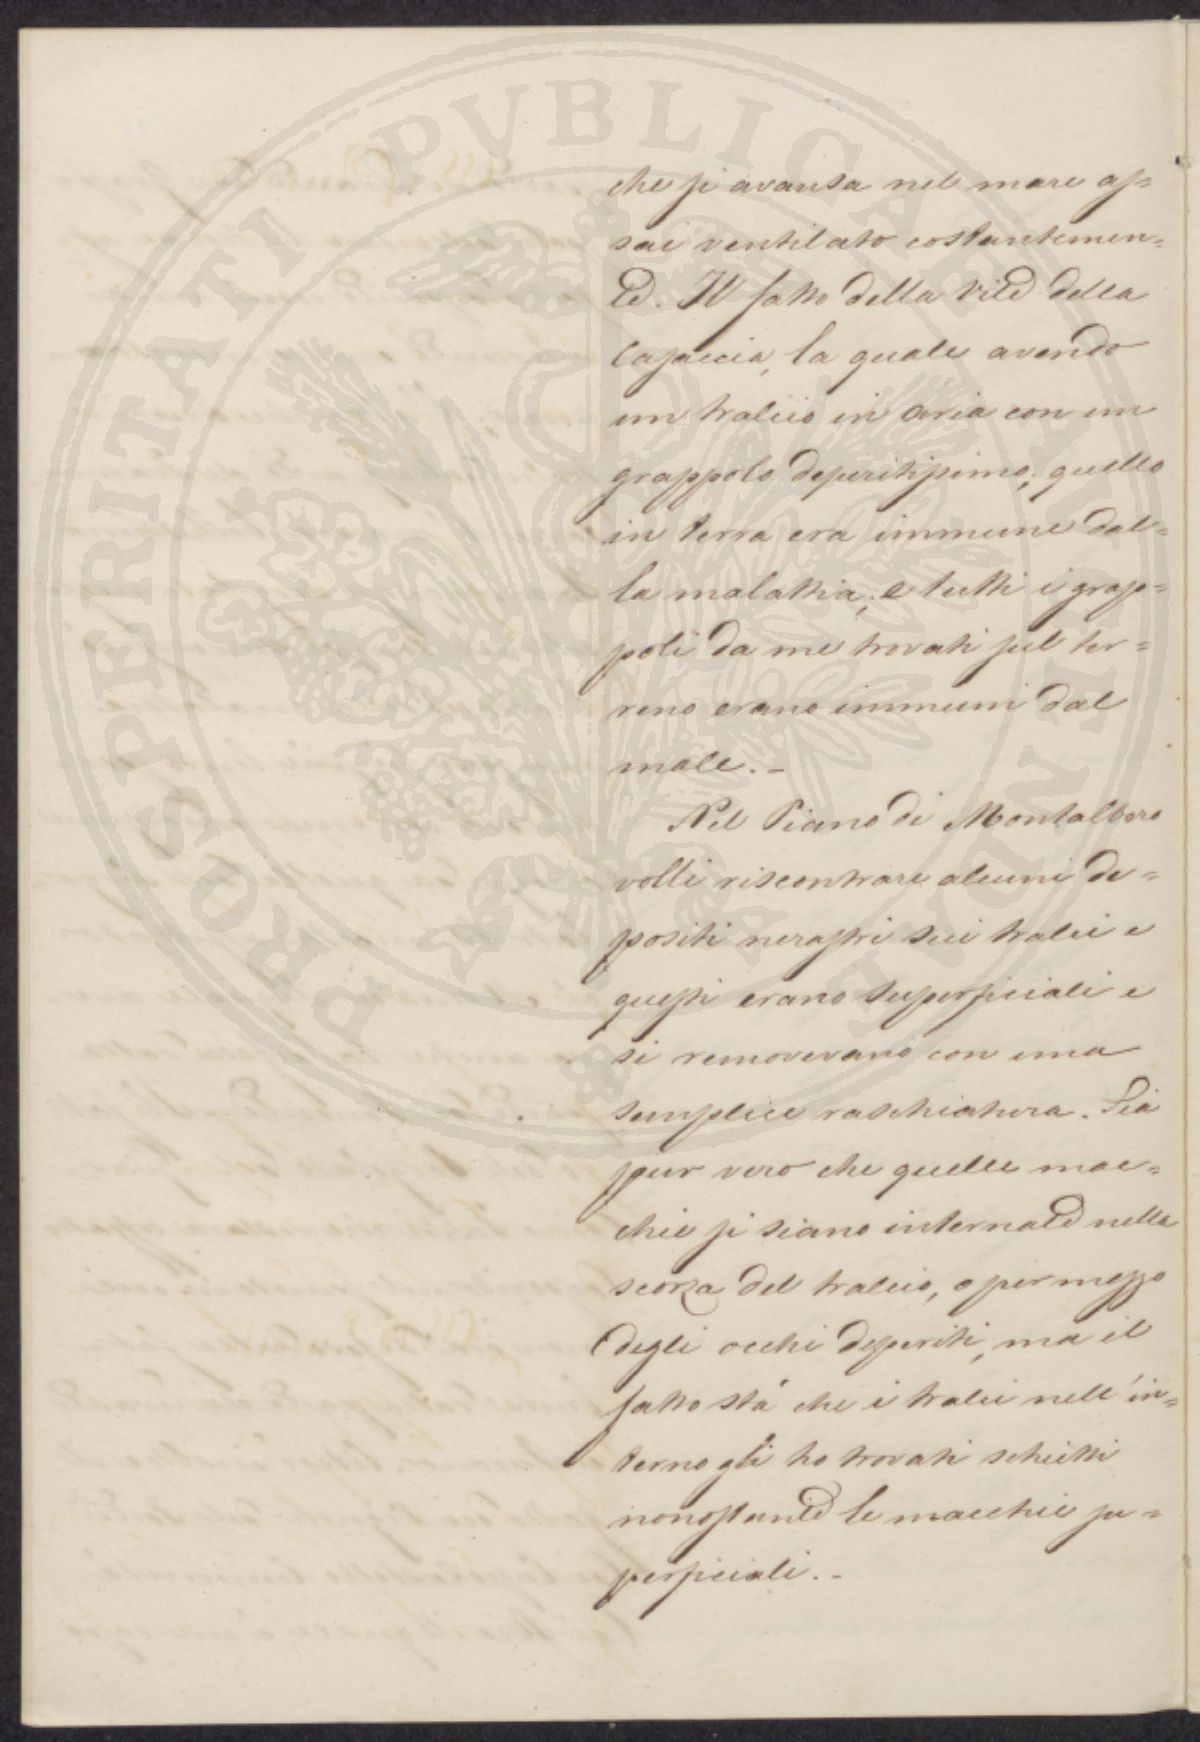 PROSPERITATI PVBLICAE AVGENDAE
che si avanza nel mare as=
sai ventilato costantemen=
te. Il fatto della Vite della
Capaccia, la quale avendo
un tralcio in aria con un
grappolo deperitissimo; quello
in terra era immune dal=
la malattia; e tutti i grap=
poli da me trovati sul ter=
reno erano immuni dal
male. -
Nel Piano di Montalbero
volli riscontrare alcuni de=
positi nerastri sui tralci e
questi erano superficiali e
si removevano con una
semplice raschiatura. Sia
pur vero che quelle mac=
chie si siano internate nella
scorza del tralcio, o per mezzo
degli occhi deperiti, ma il
fatto stà che i tralci nell'in=
terno gli ho trovati schietti
nonostante le macchie su=
perficiali. -